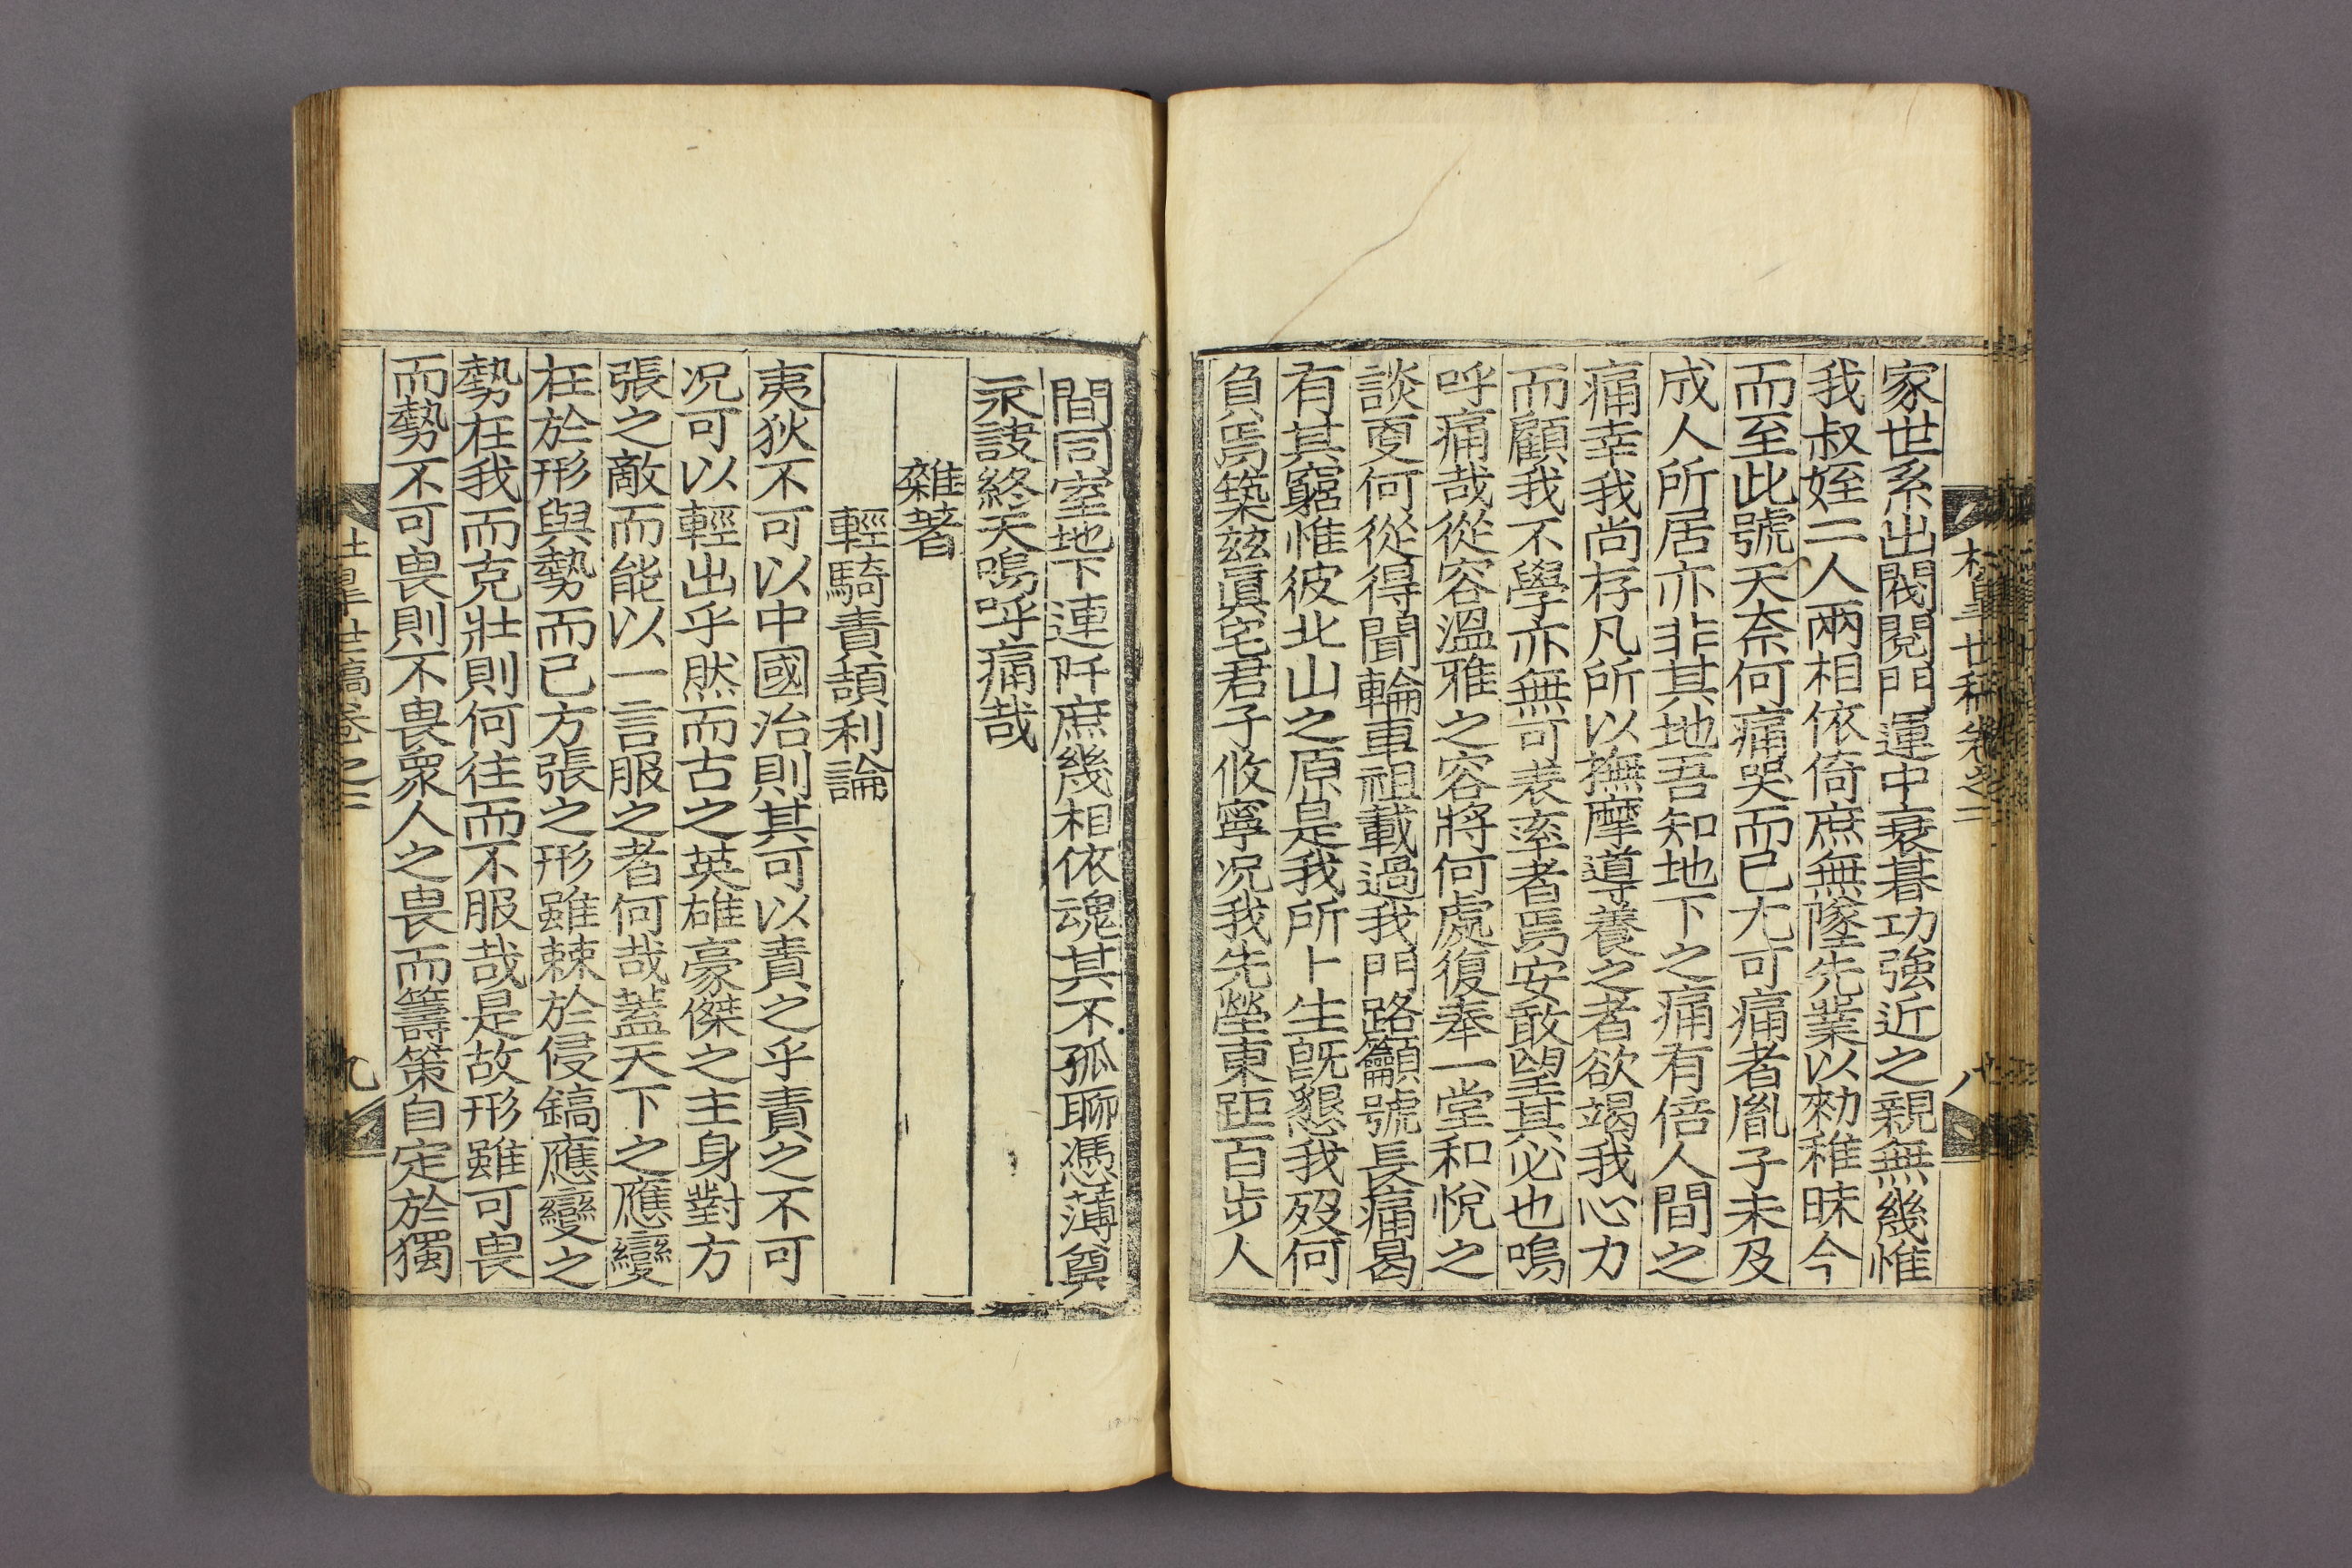 家世系出閥閱門運中衰朞功強近之親無幾惟
我叔姪二人兩相依倚庶無墜先業以勑稚昧今
而至此號天奈何痛哭而已尤可痛者胤子未及
成人所居亦非其地吾知地下之痛有倍人間之
痛幸我尚存凡所以撫摩導養之者欲竭我心力
而顧我不學亦無可表率者焉安敢望其必也嗚
呼痛哉從容溫雅之容將何處復奉一堂和悅之
談更何從得聞輪車祖載過我門路籲號長痛曷
有其窮惟彼北山之原是我所卜生旣懇我歿何
負焉築玆眞宅君子攸寧況我先塋東距百步人
八
間同室地下連阡庶幾相依魂其不孤聊憑薄奠
永訣終天嗚呼痛哉
雜著
輕騎責頡利論
夷狄不可以中國治則其可以責之乎責之不可
況可以輕出乎然而古之英雄豪傑之主身對方
張之敵而能以一言服之者何哉蓋天下之應變
在於形與勢而已方張之形雖棘於侵鎬應變之
勢在我而克壯則何往而不服哉是故形雖可畏
而勢不可畏則不畏衆人之畏而籌策自定於獨
九